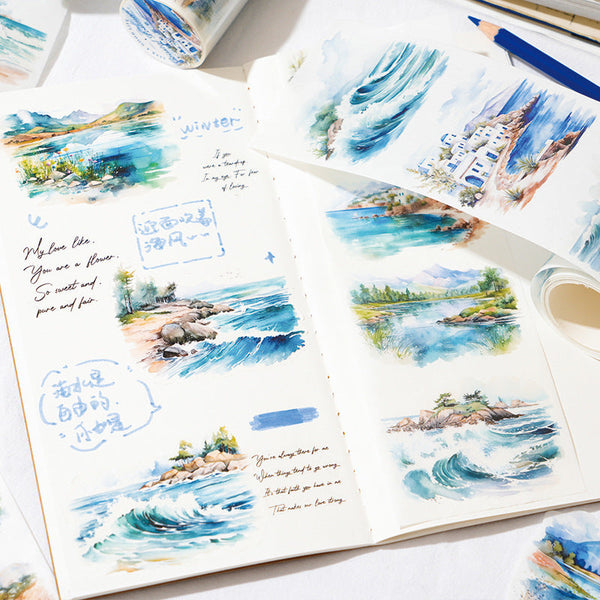 winter
If you
were a teardrop
In my eye. For fear
of losing.
My love like.
You are a flower.
So sweet and.
pure and fair.
迎面吹着
海风~~
海水是
自由的.
你也是
You're always there for me
When things tend to go wrong.
It's that faith you have in me
That makes our love strong.